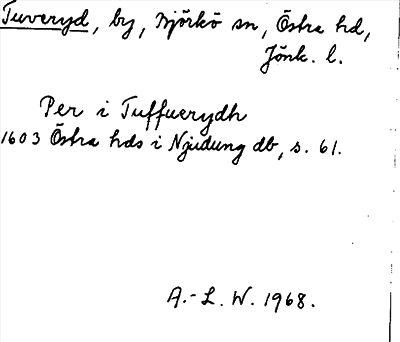 Tuveryd, by, Björkö sn, Östra hd,
Jönk. l.
Per i Tuffuerydh
1603 Östra hds i Njudung db, s. 61.
A.-L. W. 1968.